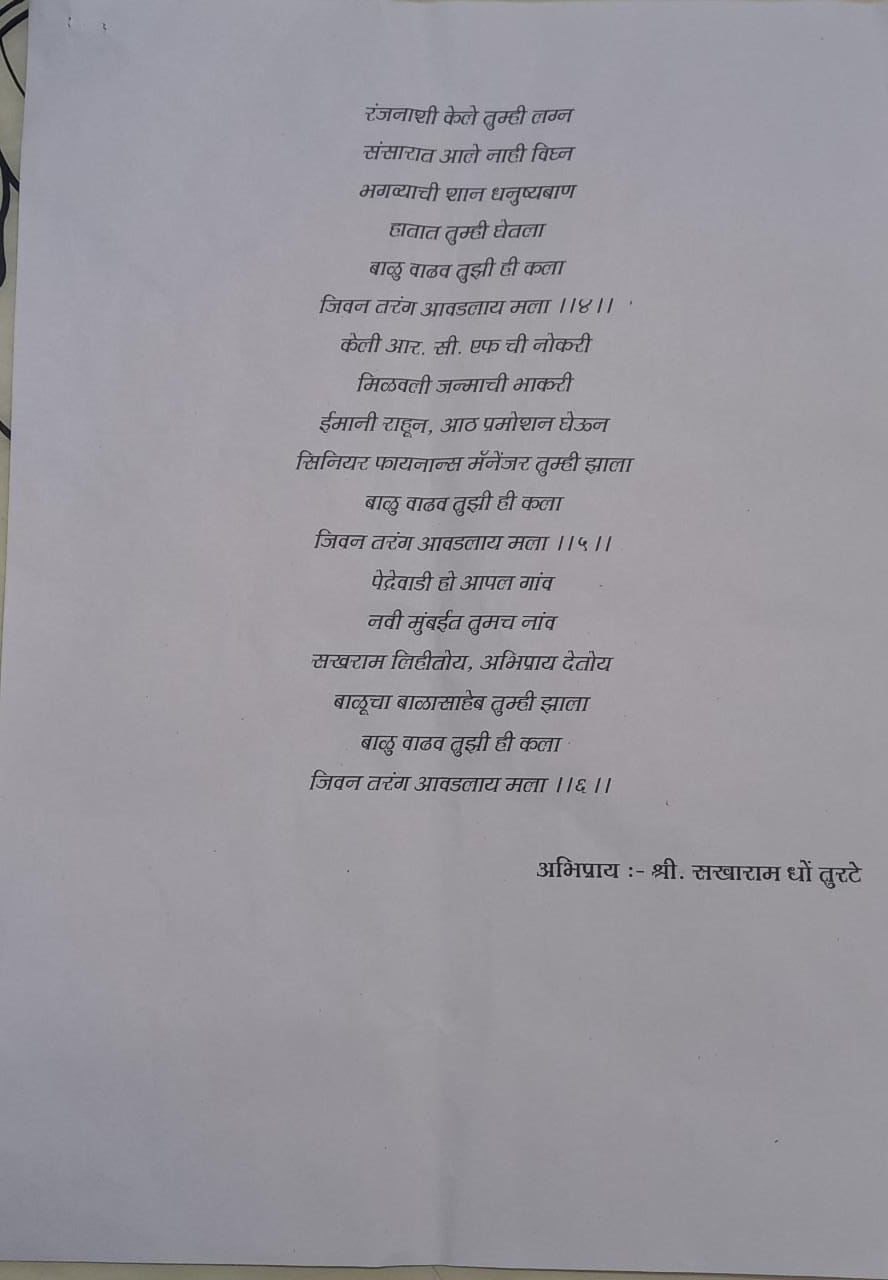 रंजनाशी केले तुम्ही लग्न
संसारात आले नाही विघ्न
भगव्याची शान धनुष्यबाण
हातात तुम्ही घेतला
बाळु वाढव तुझी ही कला
जिवन तरंग आवडलाय मला ।।४।।
केली आर. सी. एफ ची नोकरी
मिळवली जन्माची भाकरी
ईमानी राहून, आठ प्रमोशन घेऊन
सिनियर फायनान्स मॅनेंजर तुम्ही झाला
बाळु वाढव तुझी ही कला
जिवन तरंग आवडलाय मला ।।५।।
पेद्रेवाडी हो आपल गांव
नवी मुंबईत तुमच नांव
सखराम लिहीतोय, अभिप्राय देतोय
बाळूचा बाळासाहेब तुम्ही झाला
बाळु वाढव तुझी ही कला
जिवन तरंग आवडलाय मला ।।६।।
अभिप्राय :- श्री. सखाराम धों तुरटे